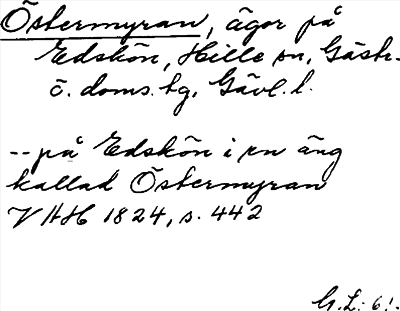 Östermyran, ägor på
Edskön, Hille sn, Gästr.
ö. doms. tg, Gävl. l.
-- på Edskön i en äng
kallad Östermyran
VAH 1824, s. 442